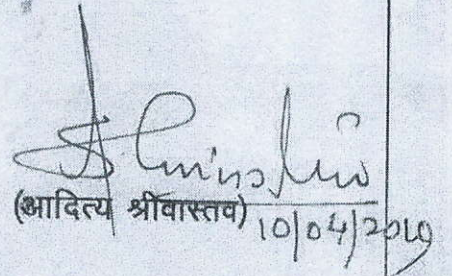 (आदित्य श्रीवास्तव) 10/04/2019